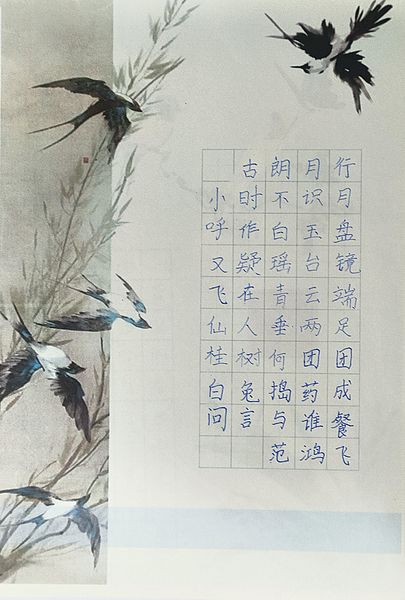 古朗月行
小时不识月
呼作白玉盘
又疑瑶台镜
飞在青云端
仙人垂两足
桂树何团团
白兔捣药成
问言与谁餐
范鸿飞